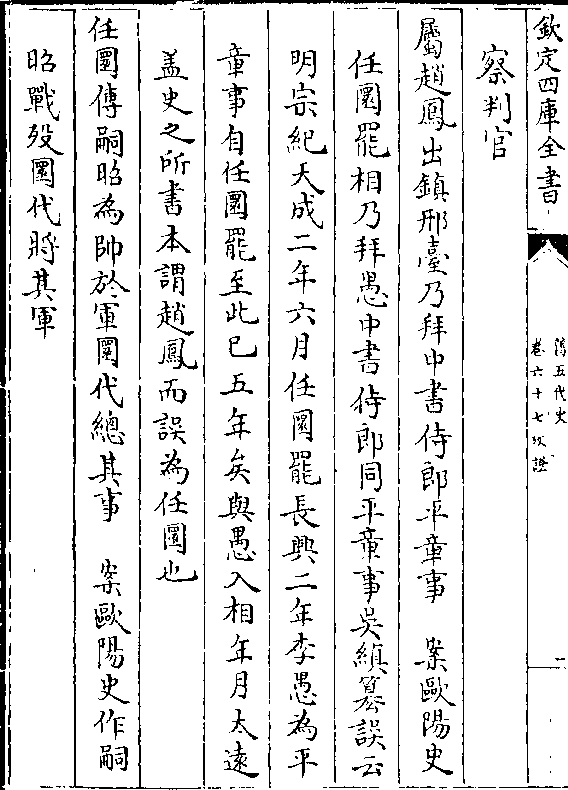 欽定四庫全書
舊五代史
卷六十七攷證
二
察判官
屬趙鳳出鎮邢臺乃拜中書侍郎平章事　案歐陽史
任圜罷相乃拜愚中書侍郎同平章事吳縝纂誤云
明宗紀天成二年六月任圜罷長興二年李愚為平
章事自任圜罷至此已五年矣與愚入相年月太遠
盖史之所書本謂趙鳳而誤為任圜也
任圜傳嗣昭為帥於軍圜代總其事　案歐陽史作嗣
昭戰歿圜代將其軍